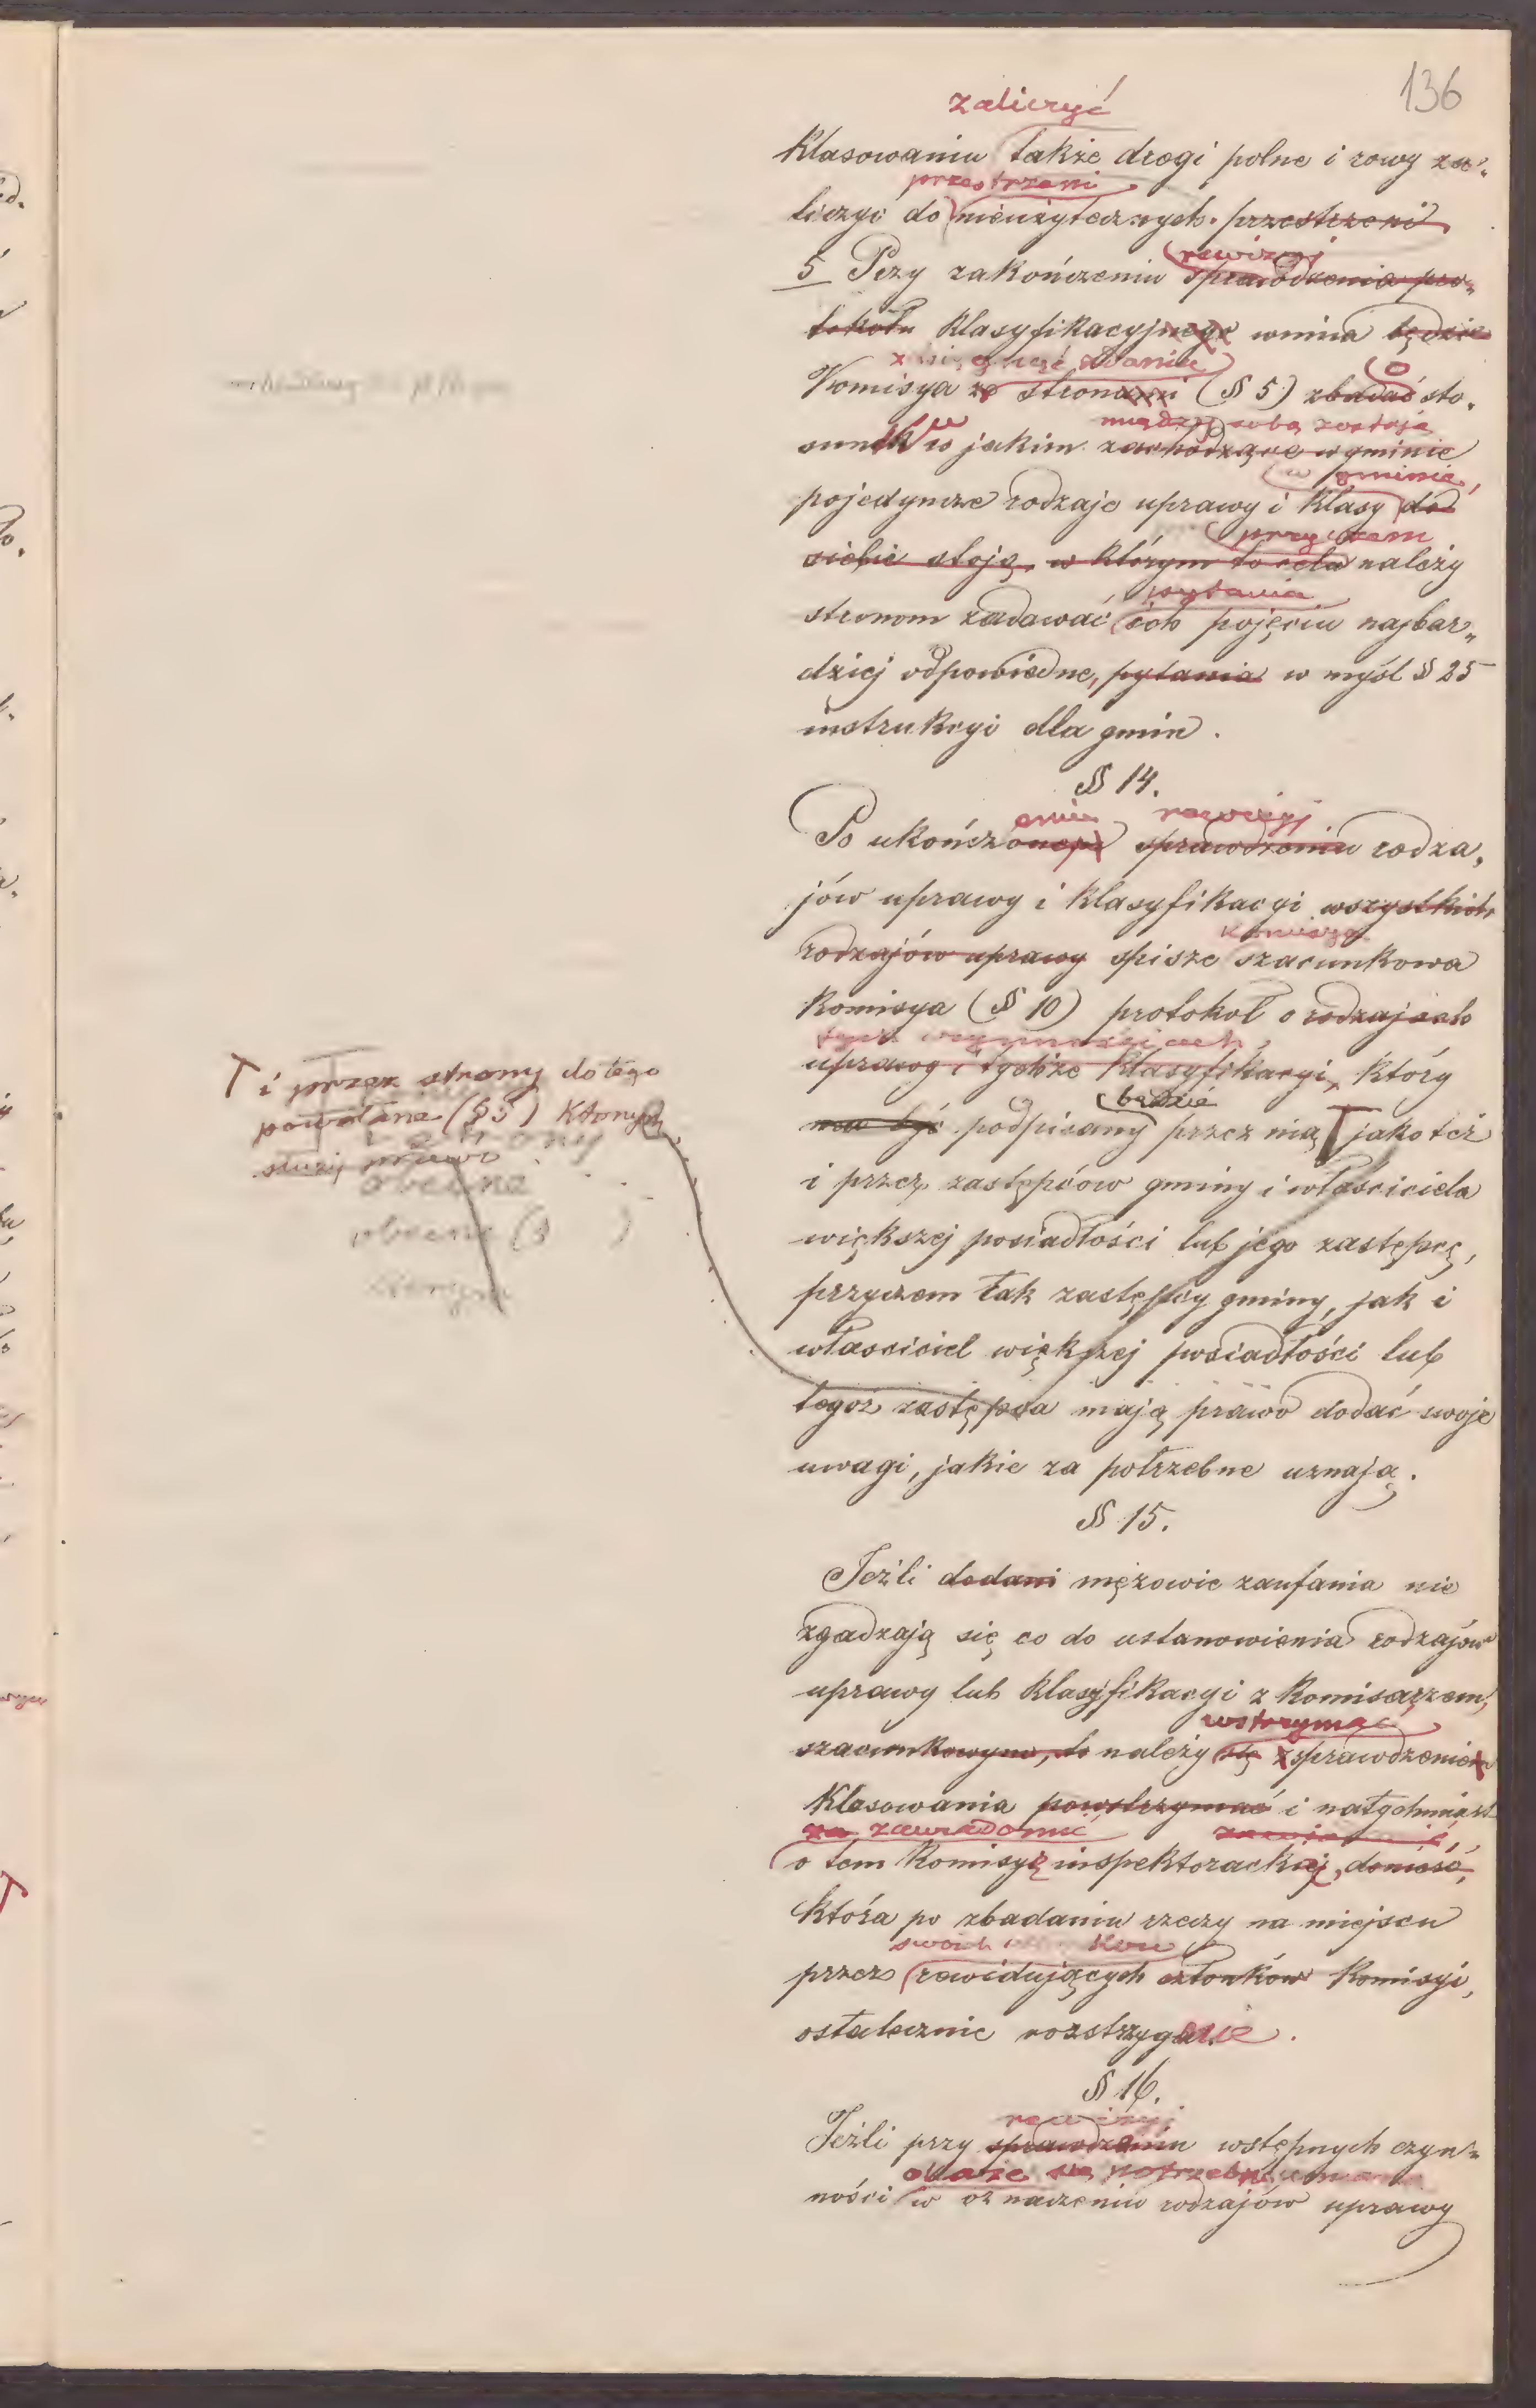 136
zaliczyć
klasowaniu także drogi polne i rowy za„
przestrzeni
liczyć do nieużytecznych przestrzeni.
rewizyi
5 Przy zakończeniu sprawdzenia pro„
tokółu klasyfikacyjnego winna będzie
zasięgnąć zdania
Komisya ze stronami (§ 5) zbadać sto„
o
między sobą zostają
sunek w jakim zachodzące w gminie
w gminie,
pojedyncze rodzaje uprawy i klasy do
przyczem
siebie stoją, w którym to celu należy
pytania
stronom zadawać ich pojęciu najbar„
dziej odpowiedne, pytania w myśl § 25
instrukcyi dla gmin.
§ 14.
eniu rewizyi
Po ukończonem sprawdzeniu rodza„
jów uprawy i klasyfikacyi wszystkich
komisya
rodzajów uprawy spisze szacunkowa
Komisya (§ 10) protokół o rodzajach
tych czynnościach,
uprawy i tychże klasyfikacyi, który
będzie
ma być podpisany przez nią T jakoteż
T i przez strony do tego
powołane (§ 5) którym
służy prawo
strony
obecne
obecne (§ )
i przez zastępców gminy i właściciela
większej posiadłości lub jego zastępcę,
przyczem tak zastępcy gminy, jak i
właściciel większej posiadłości lub
tegoż zastępca mają prawo dodać swoje
uwagi, jakie za potrzebne uznają.
§ 15.
Jeżli dodani mężowie zaufania nie
zgadzają się co do ustanowienia rodzajów
uprawy lub klasyfikacyi z Komisarzem,
wstrzymać
szacunkowym, to należy się z sprawdzeniem
klasowania powstrzymać i natychmiast
za zawiadomić zawiadomić,
o tem Komisyę inspektorackiej, donieść,
która po zbadaniu rzeczy na miejscu
swoich
przez rewidujących członków Komisyi,
ostatecznie rozstrzygnie.
§ 16.
rewizyi
Jeżli przy sprawdzeniu wstępnych czyn„
okaże się potrzeba
ności w oznaczeniu rodzajów uprawy